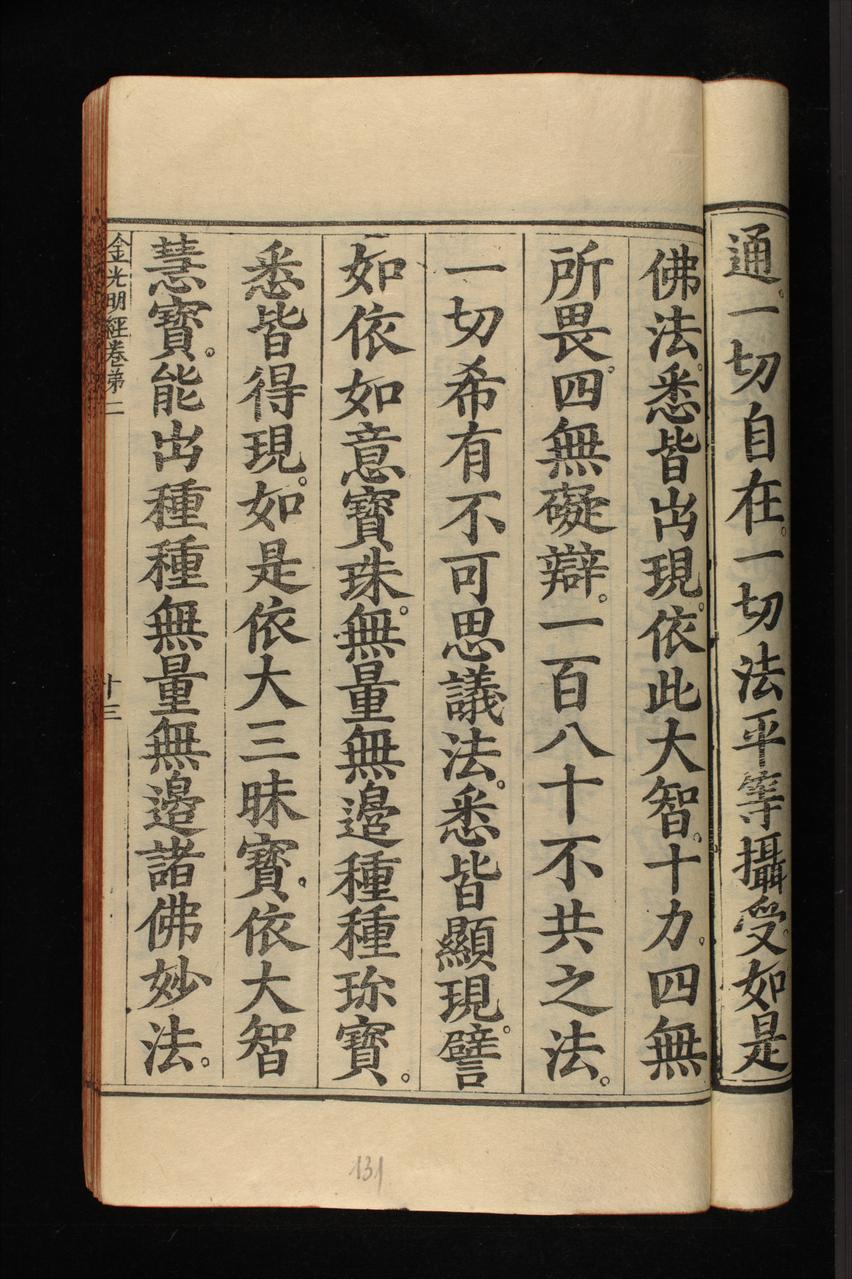 通。一切自在。一切法平等攝受。如是
佛法。悉皆出現。依此大智。十力。四無
所畏。四無礙辯。一百八十不共之法。
一切希有不可思議法。悉皆顯現。譬
如依如意寶珠。無量無邊種種珍寶。
悉皆得現。如是依大三昧寶。依大智
慧寶。能出種種無量無邊諸佛妙法。
金光明經卷第二
十三
131